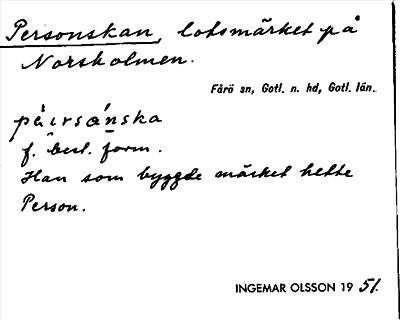 Personskan, lotsmärket på
Norsholmen.
Fårö sn, Gotl. n. hd, Gotl. län.
på̂ɩrsá̱nska
f. best. form.
Han som byggde märket hette
Person.
INGEMAR OLSSON 19 51.